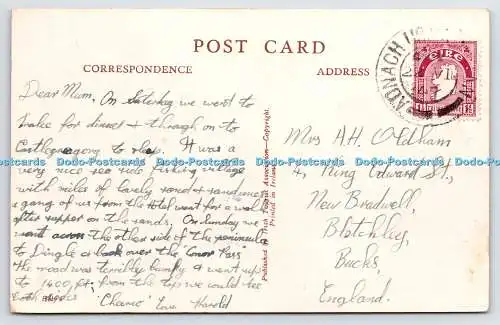 POST CARD
CORRESPONDENCE
ADDRESS
EIRE
Dear Mum, On Saturday we went to
Tralee for dinner & through on to
Castlegregory to sleep. It was a
very nice sea side fishing village
with miles of lovely sand & sand dunes
a gang of us from the hotel went for a walk
after supper on the sands. On Sunday we
went across the other side of the peninsula
to Dingle & back over the 'Conor Pass'
the road was terribly bumpy & went up
to 1400 ft, from the top we could see
both sides 'Cheerio' Your Harold
Published by Irish Tourist Association—Copyright.
Printed in Ireland
Mrs A.H. Oldham
4, King Edward St.,
New Bradwell,
Bletchley,
Bucks,
England.
Do-Postcards Do-Postcards Do-Postcards Do-Postcards Do-Postcards Do-Postcards